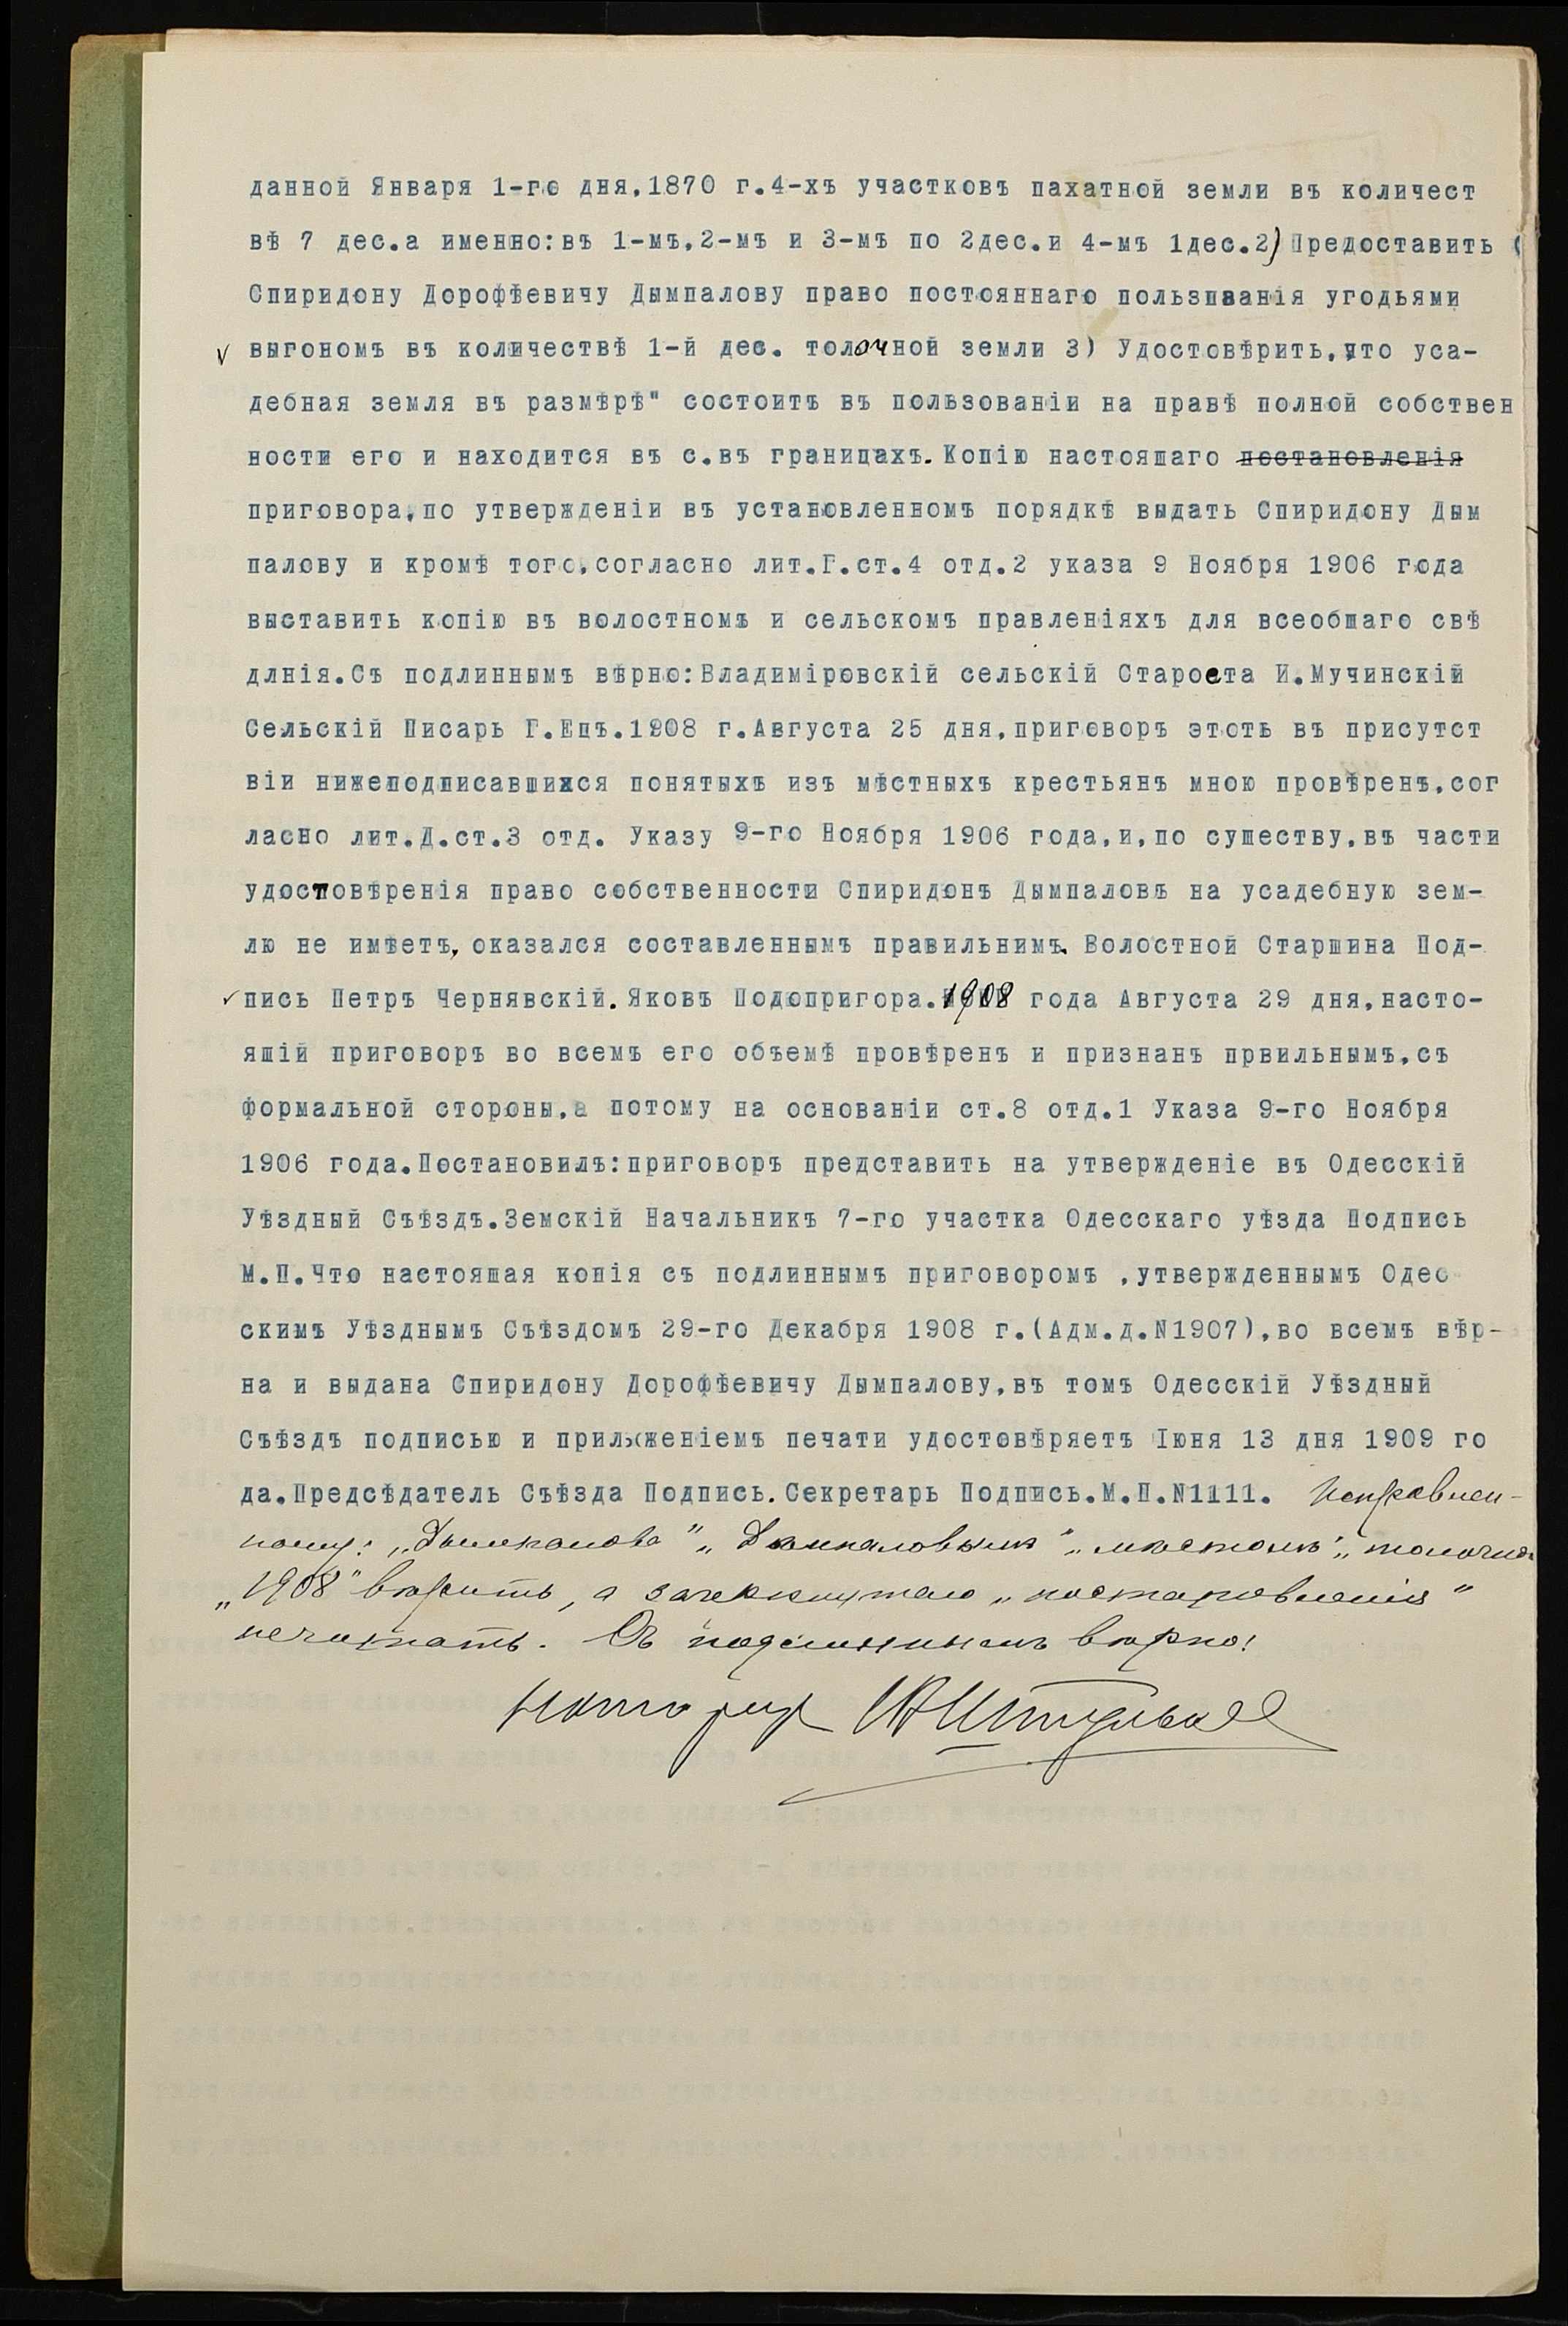 данной Января 1-го дня,1870 г.4-хъ участковъ пахатной земли въ количест
вѣ 7 дес.а именно:въ 1-мъ,2-мъ и 3-мъ по 2дес.и 4-мъ 1дес.2)Предоставить (
Спиридону Дорофѣевичу Дымпалову право постояннаго пользпванія угодьями
выгономъ въ количествѣ 1-й дес. толочной земли 3) Удостовѣрить,что уса-
дебная земля въ размѣрѣ" состоитъ въ пользованіи на правѣ полной собствен
ности его и находится въ с.въ границахъ.Копію настояшаго постановленія
приговора,по утвержденіи въ установленномъ порядкѣ выдать Спиридону Дым
палову и кромѣ того,согласно лит.Г.ст.4 отд.2 указа 9 Ноября 1906 года
выставить копію въ волостномъ и сельскомъ правленіяхъ для всеобшаго свѣ
длнія.Съ подлиннымъ вѣрно:Владиміровскій сельскій Староста И.Мучинскій
Сельскій Писарь Г.Ецъ.1908 г.Августа 25 дня,приговоръ этотъ въ присутст
віи нижеподписавшихся понятыхъ изъ мѣстныхъ крестьянъ мною провѣренъ,сог
ласно лит.Д.ст.3 отд. Указу 9-го Ноября 1906 года,и,по сушеству,въ части
удостовѣренія право собственности Спиридонъ Дымпаловъ на усадебную зем-
лю не имѣетъ, оказался составленнымъ правильнимъ. Волостной Старшина Под-
пись Петръ Чернявскій.Яковъ Подопригора.1908 года Августа 29 дня,насто-
яшій приговоръ во всемъ его объемѣ провѣренъ и признанъ првильнымъ,съ
формальной стороны,а потому на основаніи ст.8 отд.1 Указа 9-го Ноября
1906 года.Постановилъ:приговоръ представить на утвержденіе въ Одесскій
Уѣздный Съѣздъ.Земскій Начальникъ 7-го участка Одесскаго уѣзда Подпись
М.П.Что настояшая копія съ подлиннымъ приговоромъ ,утвержденнымъ Одес
скимъ Уѣзднымъ Съѣздомъ 29-го Декабря 1908 г.(Адм.д.N1907),во всемъ вѣр-
на и выдана Спиридону Дорофѣевичу Дымпалову,въ томъ Одесскій Уѣздный
Съѣздъ подписью и приложеніемъ печати удостовѣряетъ Іюня 13 дня 1909 го
да.Предсѣдатель Съѣзда Подпись.Секретарь Подпись.М.П.N1111. Исправлен-
ному: „ " „Дымпаловымъ" „ " „толочной
„1908" вѣрить, а зачеркнутаго „постановленія"
не читать. Съ подлиннымъ вѣрно!
Нотаріусъ